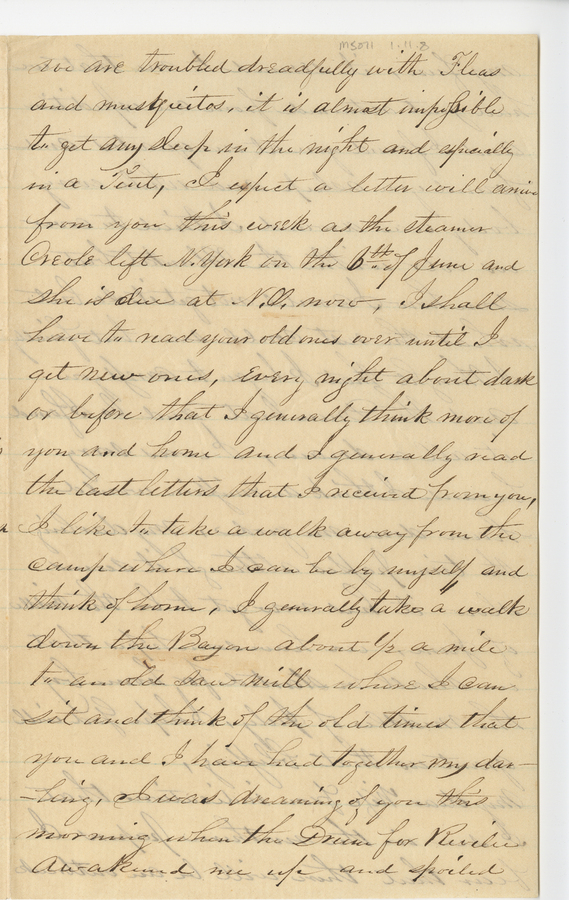 MS071 1.11.8
we are troubled dreadfully with Fleas
and musquietos, it is almost impossible
to get any sleep in the night and especially
in a Tent, I expect a letter will arrive
from you this week as the steamer
Creole left N.York on the 6th of June and
she is due at N.O. now, I shall
have to read your old ones over until I
get new ones, Every night about dark
or before that I generally think more of
you and home and I generally read
the last letters that I received from you,
I like to take a walk away from the
camp where I can be by myself and
think of home, I generally take a walk
down the Bayou about 1/2 a mile
to an old saw-mill where I can
sit and think of the old times that
you and I have had together my dar-
-ling, I was dreaming of you this
morning when the Drum for Revilie
awakened me up and spoiled